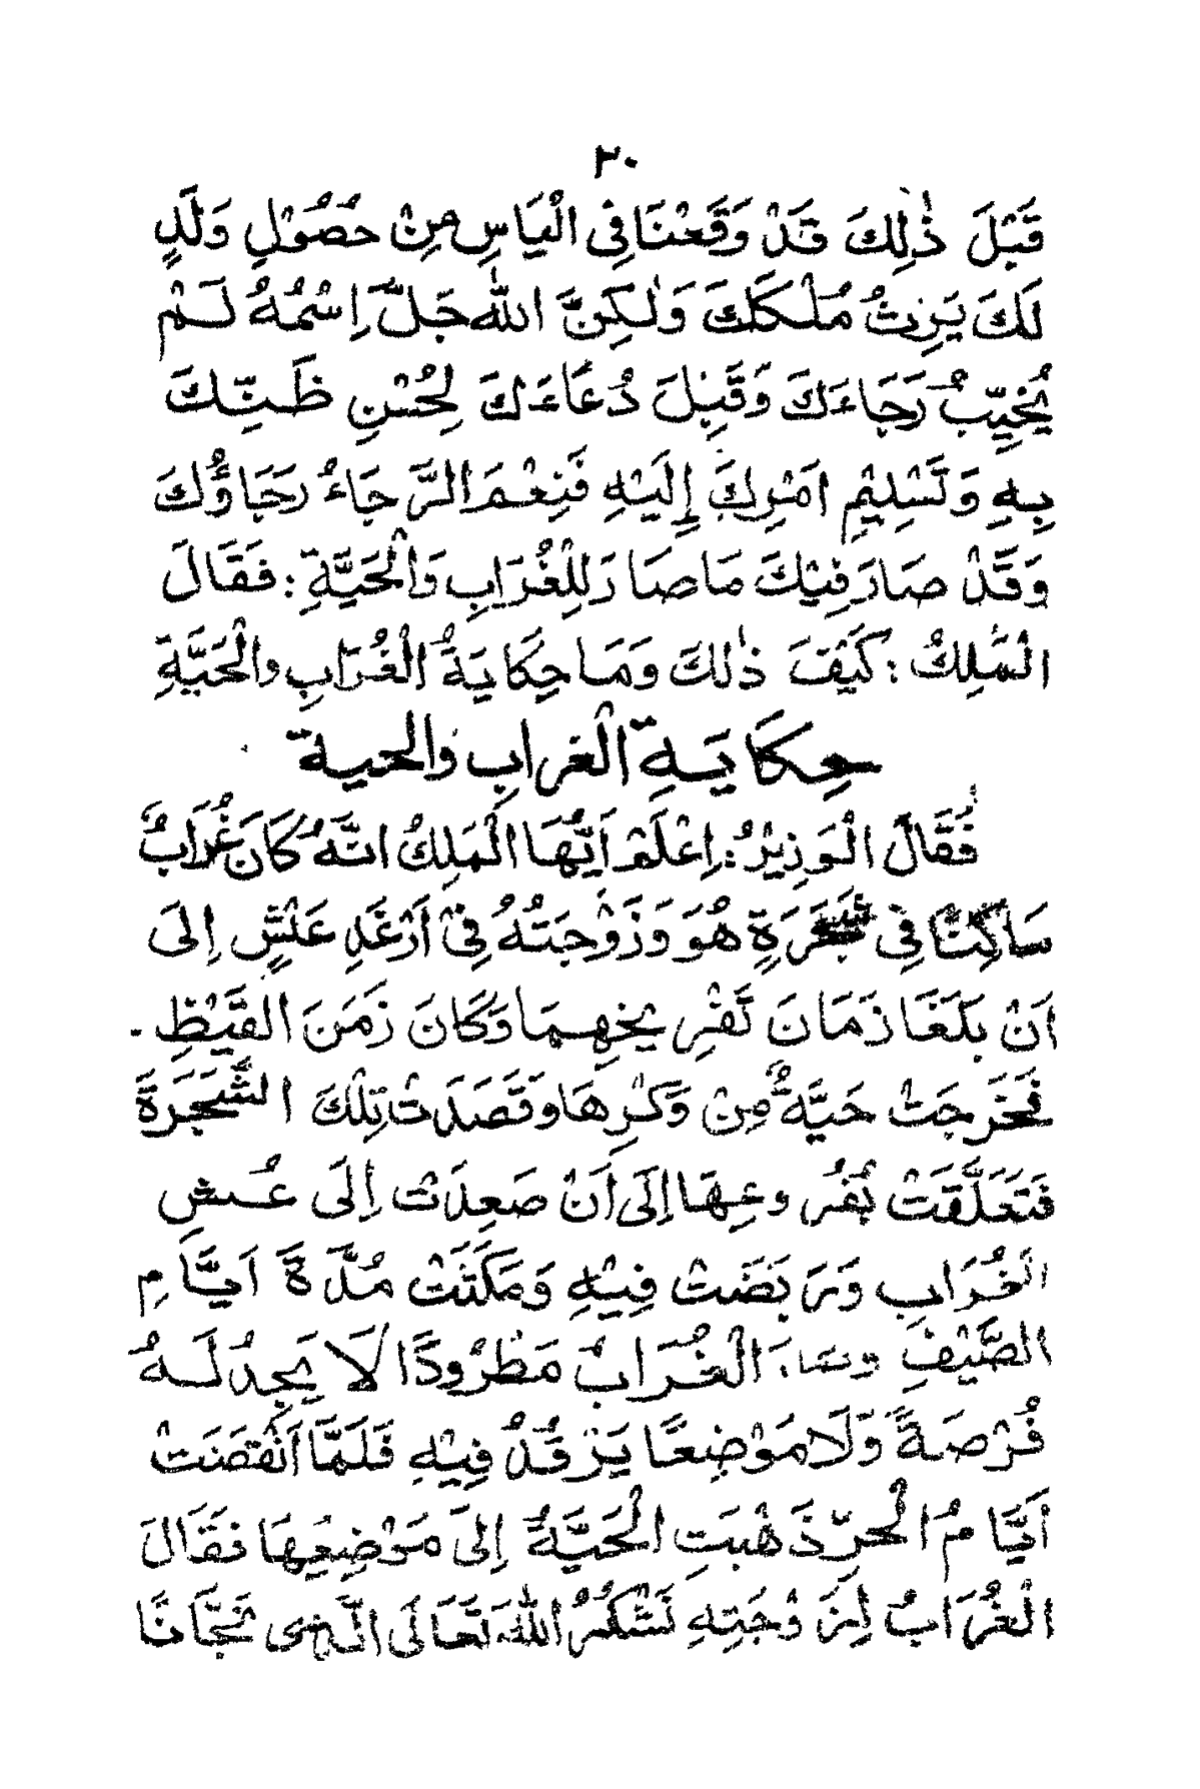 ٢٠
قَبْلَ ذٰلِكَ قَدْ وَقَعْنَا فِى الْيَاسِ مِنْ حُصُوْلِ وَلَدٍ
لَكَ يَرِثُ مُلْكَكَ وَلٰكِنَّ اللهَ جَلَّ اِسْمُهُ لَمْ
يُخَيِّبْ رَجَاءَكَ وَقَبِلَ دُعَاءَكَ لِحُسْنِ ظَنِّكَ
بِهِ وَتَسْلِيْمِ اَمْرِكَ إِلَيْهِ فَنِعْمَ الرَّجَاءُ رَجَاؤُكَ
وَقَدْ صَارَ فِيْكَ مَا صَارَ لِلْغُرَابِ وَالْحَيَّةِ : فَقَالَ
الْمَلِكُ : كَيْفَ ذٰلِكَ وَمَا حِكَايَةُ الْغُرَابِ وَالْحَيَّةِ
حِكَايَةِ الْغرابِ والحية
فَقَالَ الْوَزِيْرُ : اِعْلَمْ اَيُّهَا الْمَلِكُ اَنَّهُ كَانَ غُرَابٌ
سَاكِنًا فِى شَجَرَةٍ هُوَ وَزَوْجَتُهُ فِىْ اَرْغَدِ عَيْشٍ إِلَى
اَنْ بَلَغَا زَمَانَ تَفْرِيخِهِمَا وَكَانَ زَمَنَ الْقَيْظِ .
فَخَرَجَتْ حَيَّةٌ مِنْ وَكْرِهَا وَقَصَدَتْ تِلْكَ الشَّجَرَةَ
فَتَعَلَّقَتْ بِفُرُوعِهَا اِلَى اَنْ صَعِدَتْ اِلَى عُشِّ
الْغُرَابِ وَرَبَضَتْ فِيْهِ وَمَكَثَتْ مُدَّةَ اَيَّامِ
الصَّيْفِ الْغُرَابُ مَطْرُودًا لَا يَجِدُ لَهُ
فُرْصَةً وَلَا مَوْضِعًا يَرْقُدُ فِيْهِ فَلَمَّا انْقَضَتْ
اَيَّامُ الْحَرِّ ذَهَبَتِ الْحَيَّةُ اِلَى مَوْضِعِهَا فَقَالَ
الْغُرَابُ لِزَوْجَتِهِ نَشْكُرُ اللهَ تَعَالَى الَّذِى نَجَّانَا